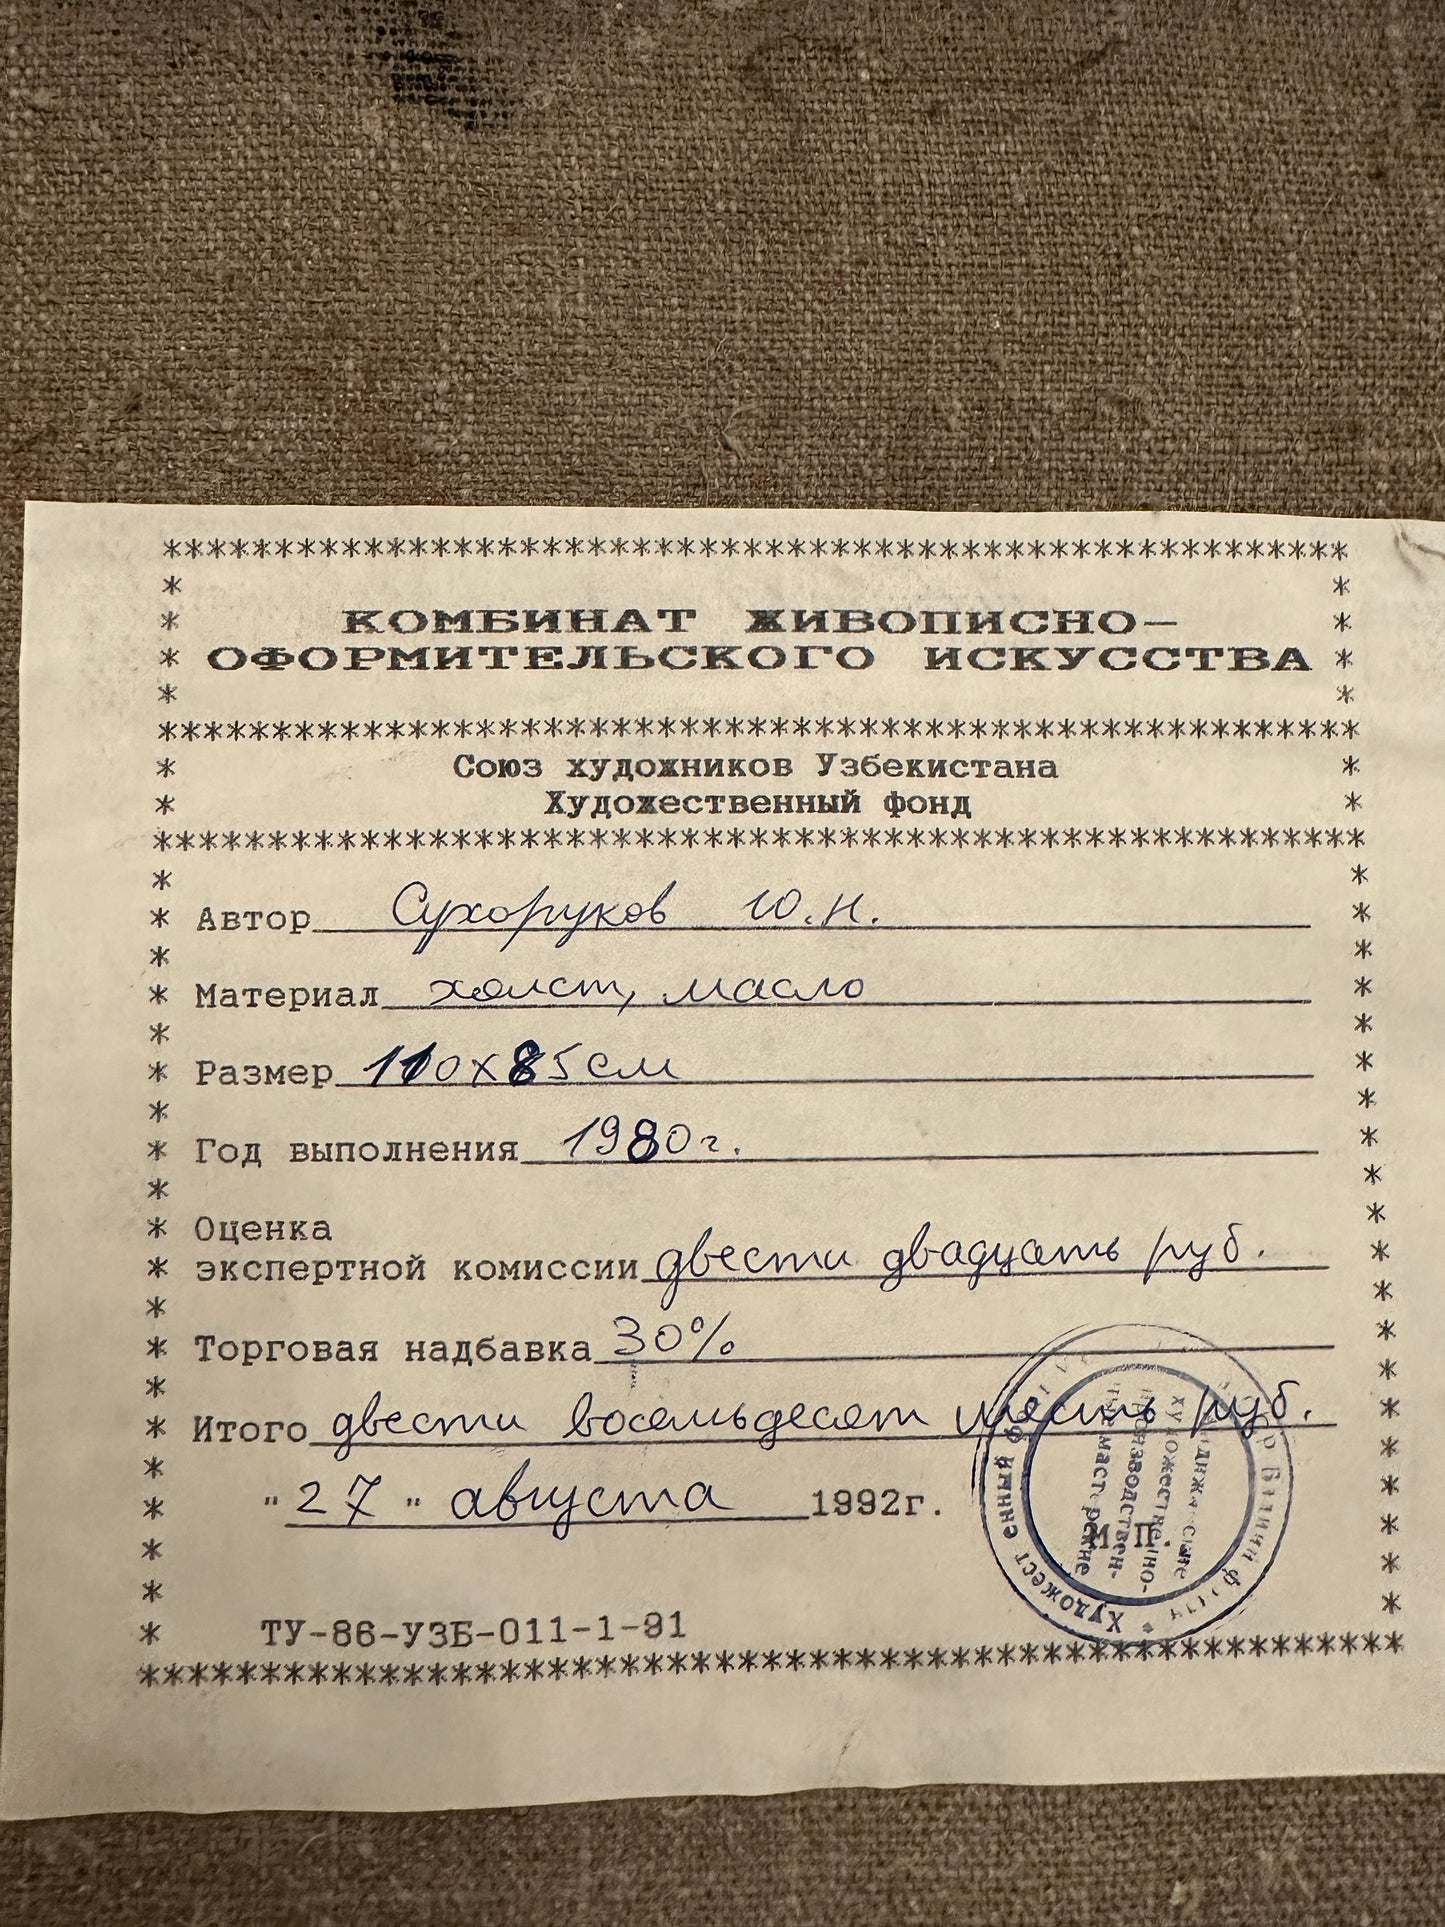 ****************************************************
КОМБИНАТ ЖИВОПИСНО-
ОФОРМИТЕЛЬСКОГО ИСКУССТВА
****************************************************
Союз художников Узбекистана
Художественный фонд
****************************************************
Автор Сухоруков Ю.Н.
Материал холст, масло
Размер 110х85см
Год выполнения 1980г.
Оценка
экспертной комиссии двести двадцать руб.
Торговая надбавка 30%
Итого двести восемьдесят шесть руб.
"27" августа 1992г.
М.П.
ТУ-86-УЗБ-011-1-91
****************************************************
Художественный фонд
художественно-
производствен-
мастерские